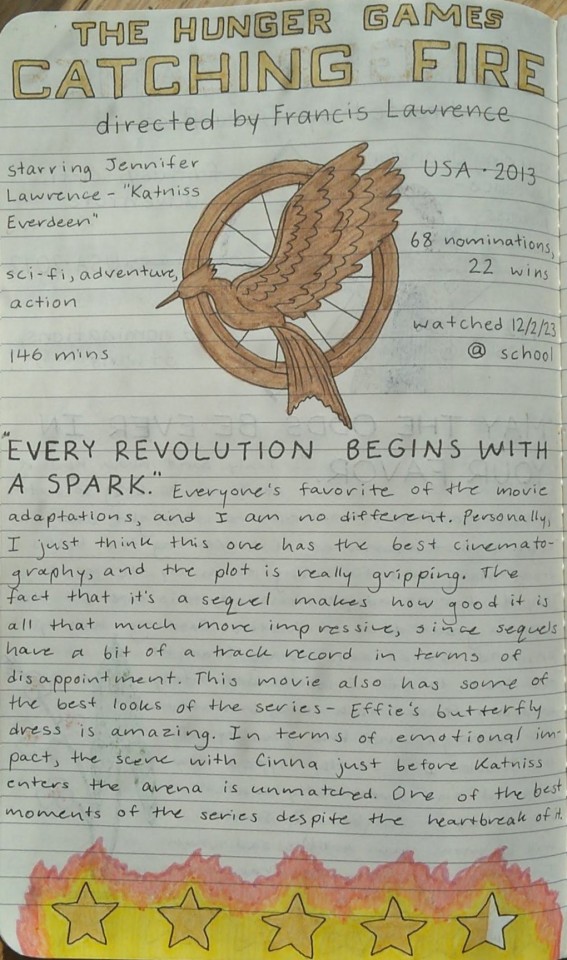 THE HUNGER GAMES
CATCHING FIRE
directed by Francis Lawrence
starring Jennifer
Lawrence - "Katniss
Everdeen"
sci-fi, adventure,
action
146 mins
USA · 2013
68 nominations,
22 wins
watched 12/2/23
@ school
"EVERY REVOLUTION BEGINS WITH
A SPARK." Everyone's favorite of the movie
adaptations, and I am no different. Personally,
I just think this one has the best cinemato-
graphy, and the plot is really gripping. The
fact that it's a sequel makes how good it is
all that much more impressive, since sequels
have a bit of a track record in terms of
disappointment. This movie also has some of
the best looks of the series- Effie's butterfly
dress is amazing. In terms of emotional im-
pact, the scene with Cinna just before Katniss
enters the arena is unmatched. One of the best
moments of the series despite the heartbreak of it.
MAY THE ODDS BE EVER IN
YOUR FAVOR